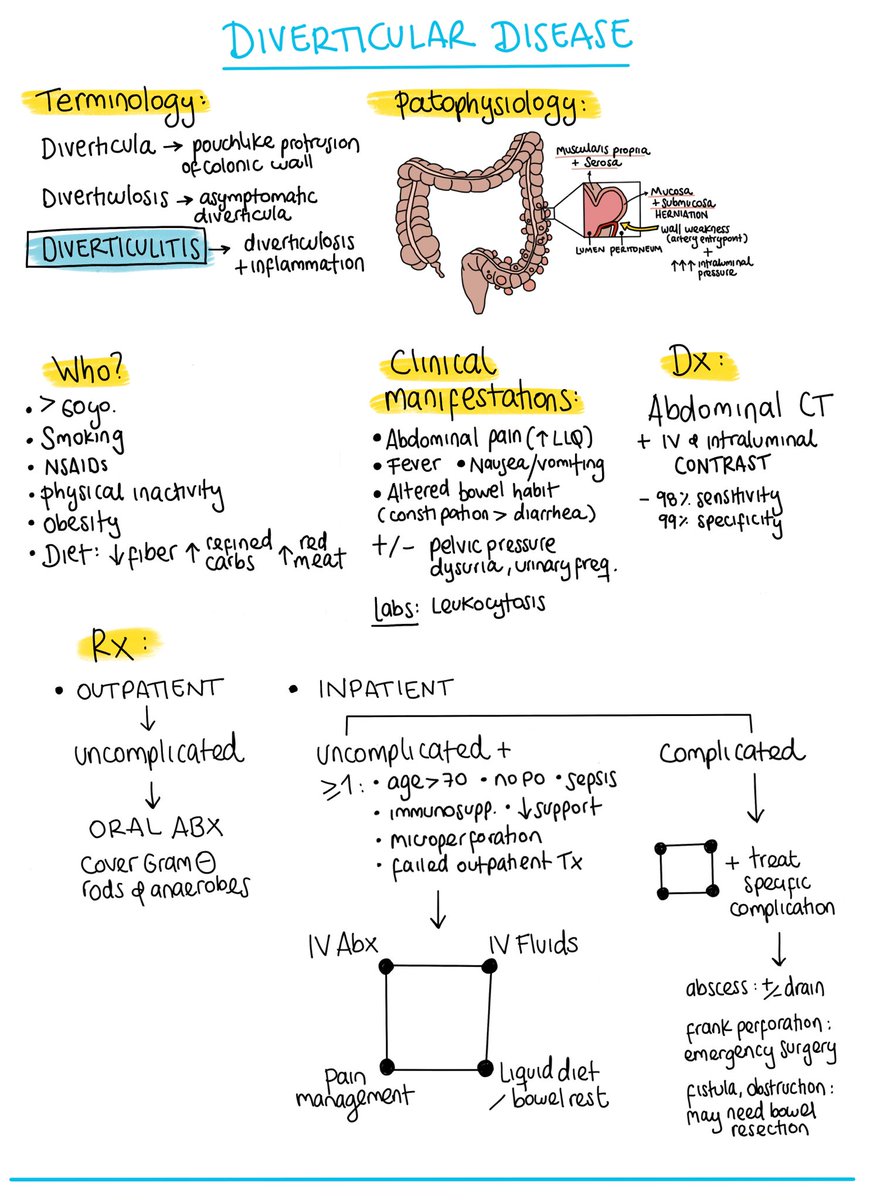 DIVERTICULAR DISEASE
Terminology:
Diverticula → pouchlike protrusion
of colonic wall
Diverticulosis → asymptomatic
diverticula
DIVERTICULITIS → diverticulosis
+ inflammation
Patophysiology:
Muscularis propria
+ Serosa
Mucosa
+ submucosa
HERNIATION
wall weakness
(artery entrypoint)
+
↑↑↑ intraluminal
pressure
LUMEN PERITONEUM
Who?
• > 60yo.
• Smoking
• NSAIDs
• physical inactivity
• obesity
• Diet: ↓ fiber ↑ refined carbs ↑ red meat
Clinical
manifestations:
• Abdominal pain (↑ LLQ)
• Fever • Nausea/vomiting
• Altered bowel habit
(constipation > diarrhea)
+/- pelvic pressure
dysuria, urinary freq.
Labs: Leukocytosis
Dx:
Abdominal CT
+ IV & intraluminal
CONTRAST
- 98% sensitivity
99% specificity
Rx:
• OUTPATIENT
↓
uncomplicated
↓
ORAL ABX
cover Gram ⊖
rods & anaerobes
• INPATIENT
uncomplicated +
≥1: • age > 70 • no PO • sepsis
• immunosupp. • ↓ support
• microperforation
• failed outpatient Tx
↓
IV Abx
IV Fluids
Pain
management
Liquid diet
/ bowel rest
Complicated
↓
+ treat
specific
complication
↓
abscess: +/- drain
frank perforation:
emergency surgery
fistula, obstruction:
may need bowel
resection